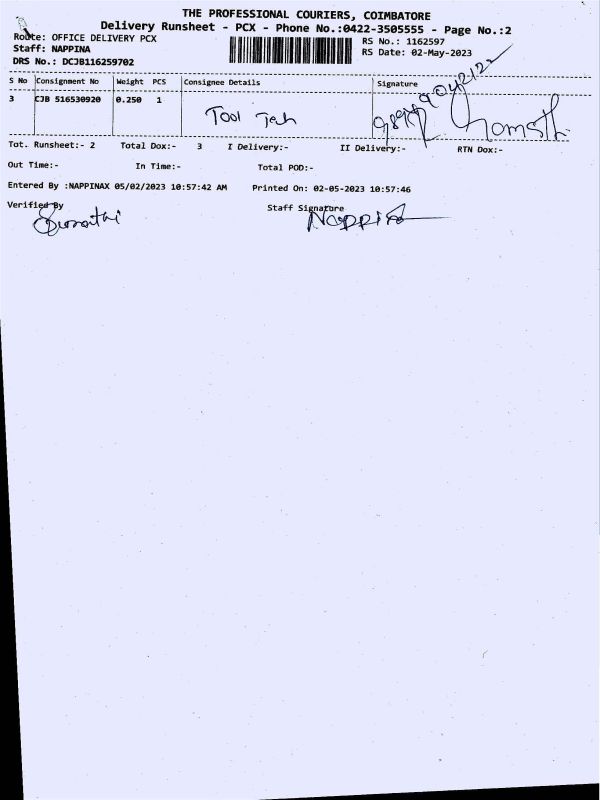 THE PROFESSIONAL COURIERS, COIMBATORE
Delivery Runsheet - PCX - Phone No.:0422-3505555 - Page No.:2
Route: OFFICE DELIVERY PCX
RS No.: 1162597
Staff: NAPPINA
RS Date: 02-May-2023
DRS No.: DCJB116259702
S No Consignment No Weight PCS Consignee Details Signature
3 CJB 516530920 0.250 1 Tool
Tot. Runsheet:- 2 Total Dox:- 3 I Delivery:- II Delivery:- RTN Dox:-
Out Time:- In Time:- Total POD:-
Entered By :NAPPINAX 05/02/2023 10:57:42 AM Printed On: 02-05-2023 10:57:46
Verified By Staff Signature
Nappina